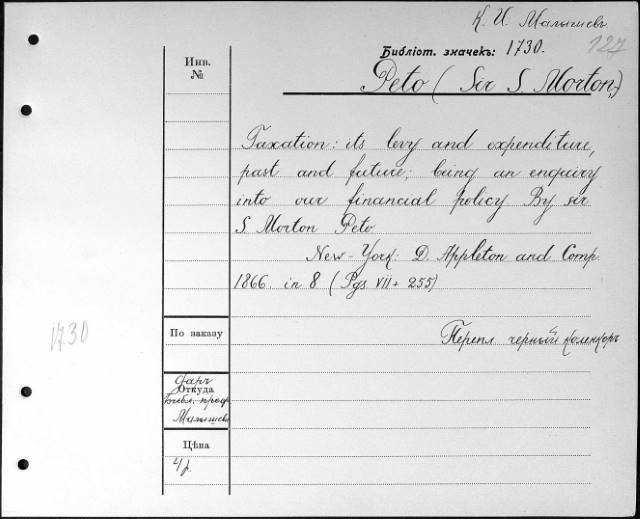 К. И. Малышевъ.
127
Библіот. значекъ: 1730.
Инв.
№
Peto (Sir S. Morton,)
Taxation: its levy and expenditure,
past and future; being an enquiry
into our financial policy By sir
S Morton Peto
New-York: D. Appleton and Comp.
1866. in 8 (Pgs. VII + 255)
1730
По заказу
Перепл. черный коленкоръ
даръ
Откуда
Библ. проф.
Малышева
Цѣна
4 р.